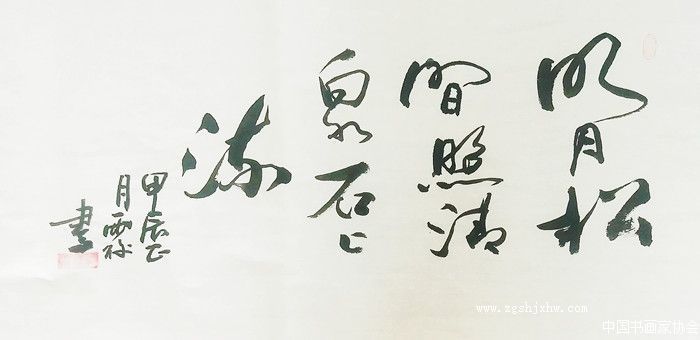 明月松
間照清
泉石上
流
甲辰正
月
書
www.zgshjxhw.com
中国书画家协会